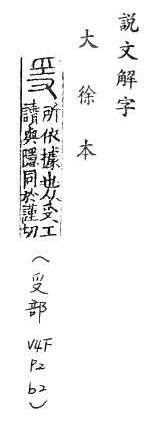 説文解字
大徐本
𤔌
所依據也从𠬪工
讀與隱同於謹切
(𠬪部
V4F
P2
b2)